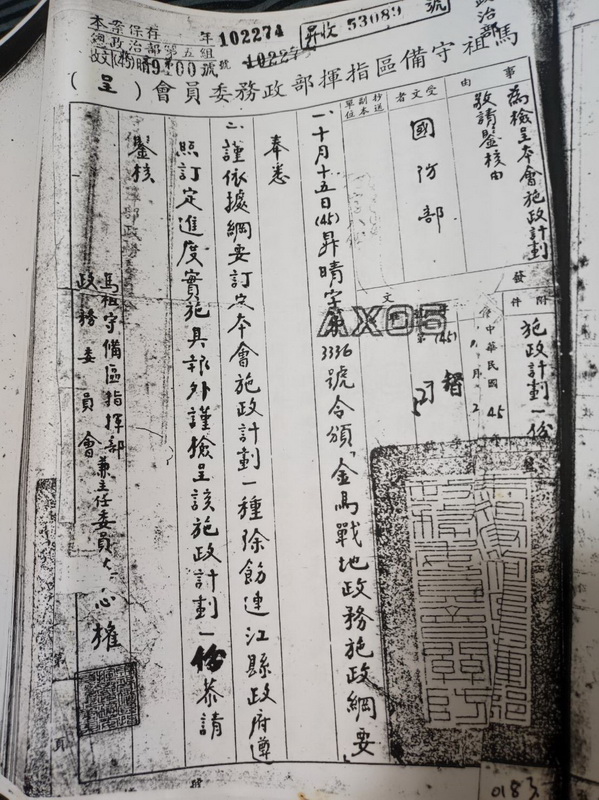 本案保存 年
總政治部第五組
102274
昇收 53089 號
政治部
馬祖守備區指揮部政務委員會(呈)
事由
為檢呈本會施政計劃
敬請鑒核由
附件
施政計劃一份
受文者
國防部
抄送
副本
單位
發文
中華民國45
AX05
一、十月十五日(45)昇晴字第3336號令頒「金馬戰地政務施政綱要」
奉悉
二、謹依據綱要訂定本會施政計劃一種除飭連江縣政府遵
照訂定進度實施具報外謹檢呈該施政計劃一份恭請
鑒核
馬祖守備區指揮部
政務委員會
兼主任委員
心權
第
頁
0183